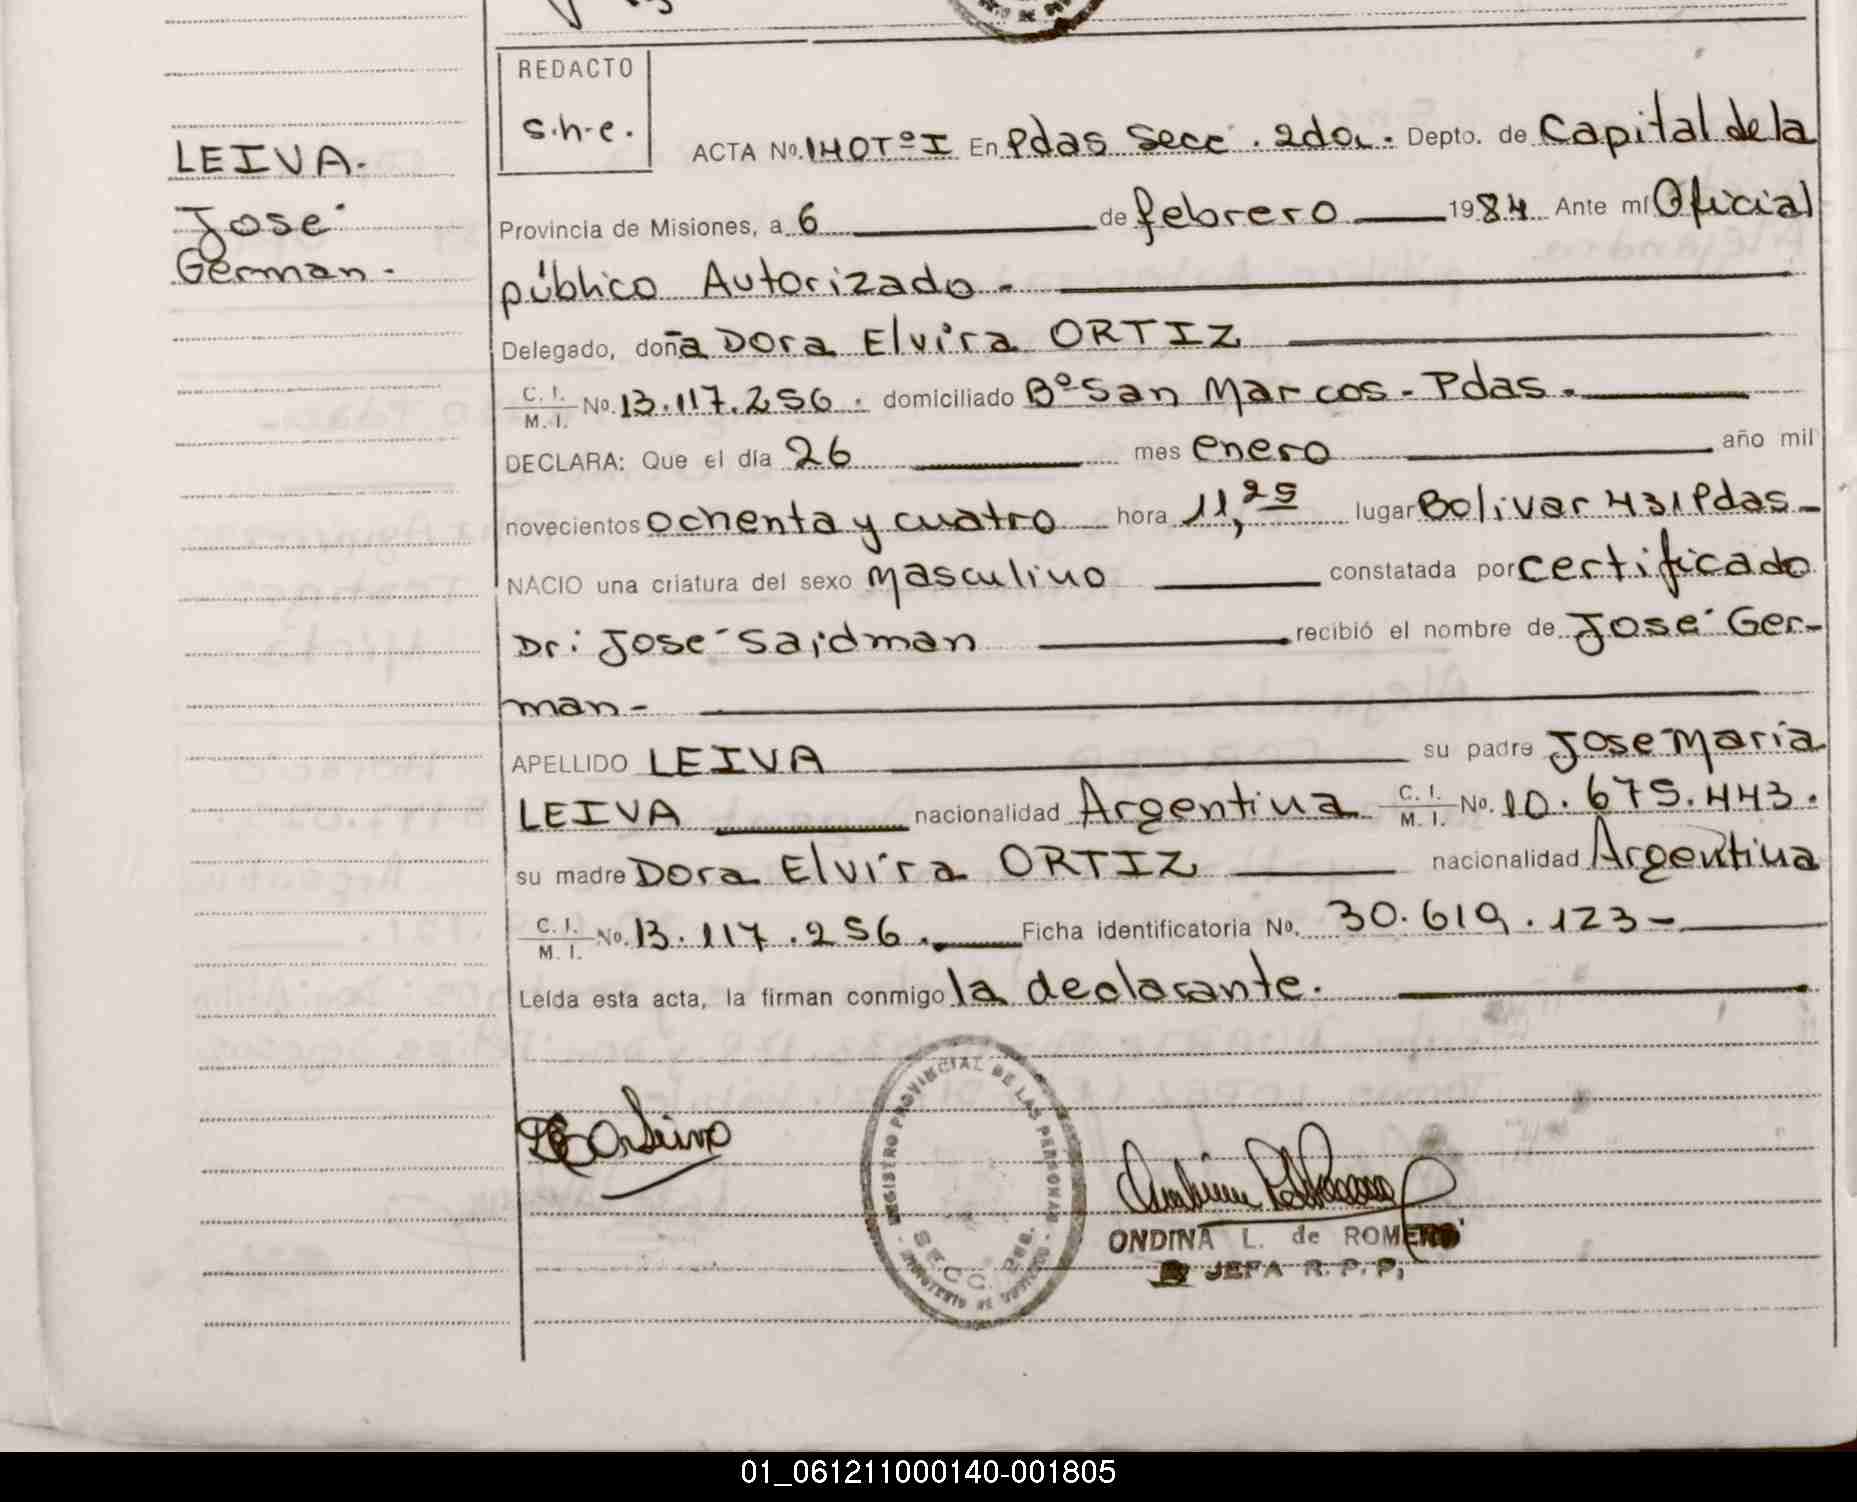 REDACTO
s.h.e.
LEIVA.
José
German.
ACTA No. 140 Tº I En Pdas Secc. 2da. Depto. de Capital de la
Provincia de Misiones, a 6 de febrero 1984 Ante mí Oficial
público Autorizado.
Delegado, doña Dora Elvira ORTIZ
C. I. / M. I. No. 13.117.256. domiciliado Bº San Marcos - Pdas.
DECLARA: Que el día 26 mes enero año mil
novecientos ochenta y cuatro hora 11,25 lugar Bolivar 431 Pdas-
NACIO una criatura del sexo masculino constatada por certificado
Dr: José Saidman recibió el nombre de José Ger-
man-
APELLIDO LEIVA su padre José Maria
LEIVA nacionalidad Argentina C. I. / M. I. No. 10.675.443.
su madre Dora Elvira ORTIZ nacionalidad Argentina
C. I. / M. I. No. 13.117.256. Ficha identificatoria No. 30.619.123-
Leída esta acta, la firman conmigo la declarante.
REGISTRO PROVINCIAL DE LAS PERSONAS
SECC. 2da.
ONDINA L. de ROMERO
JEFA R. P. P.
01_061211000140-001805